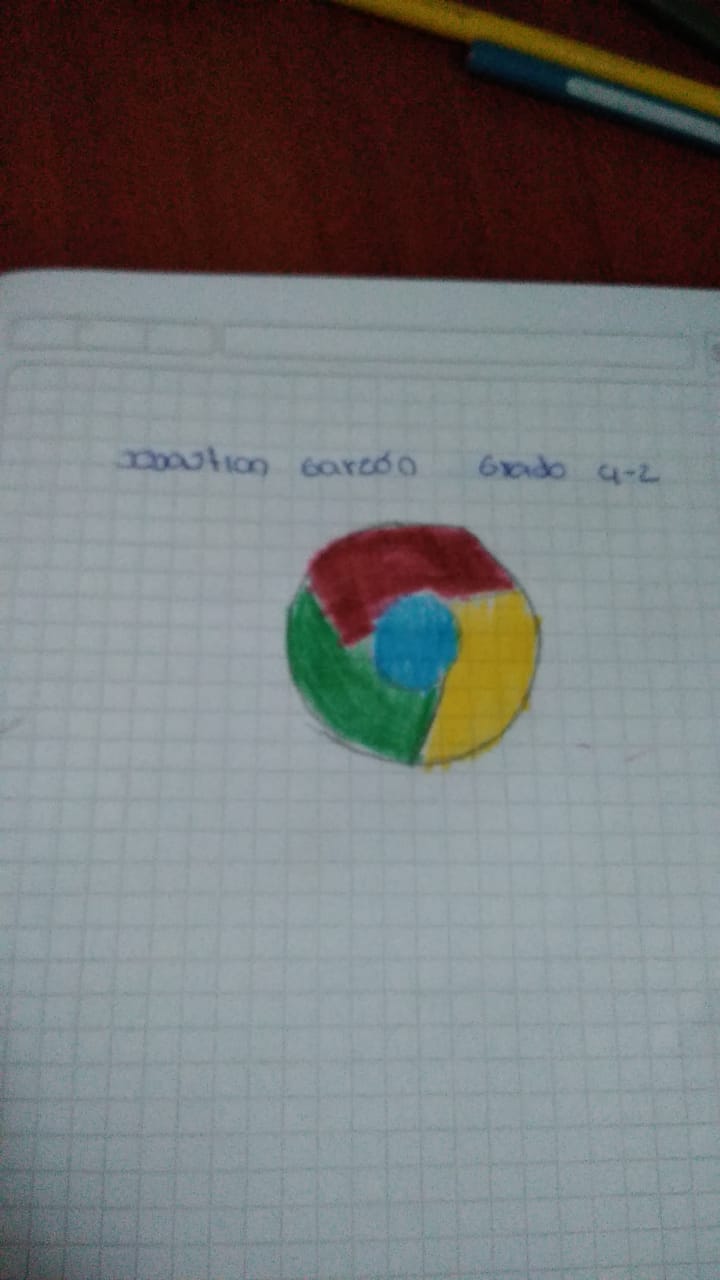 Sebastian Garzón Grado 4-2